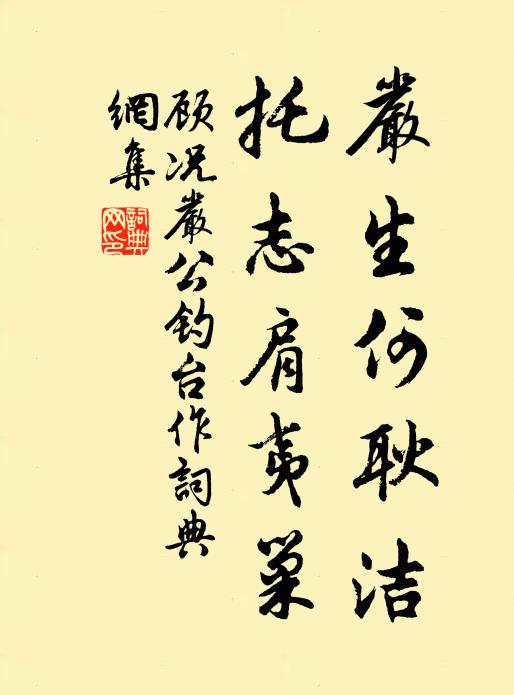 嚴生何耿洁
托志肩夷巢
顾况嚴公钓台作詞典
網集
詞典网印